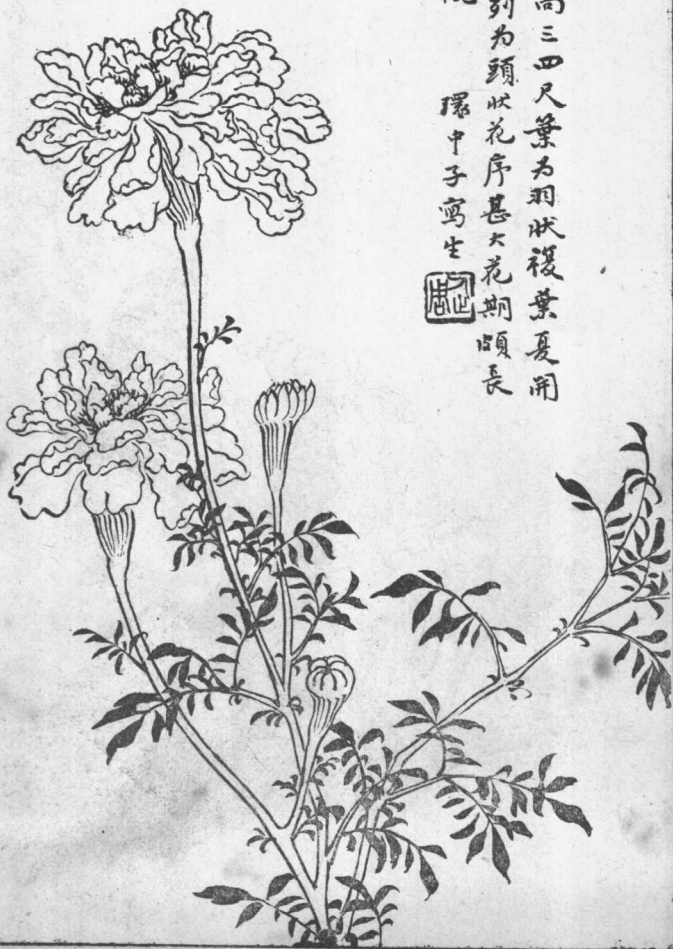 高三四尺葉为羽狀複葉夏開
列为頭狀花序甚大花期頗長
環中子寫生